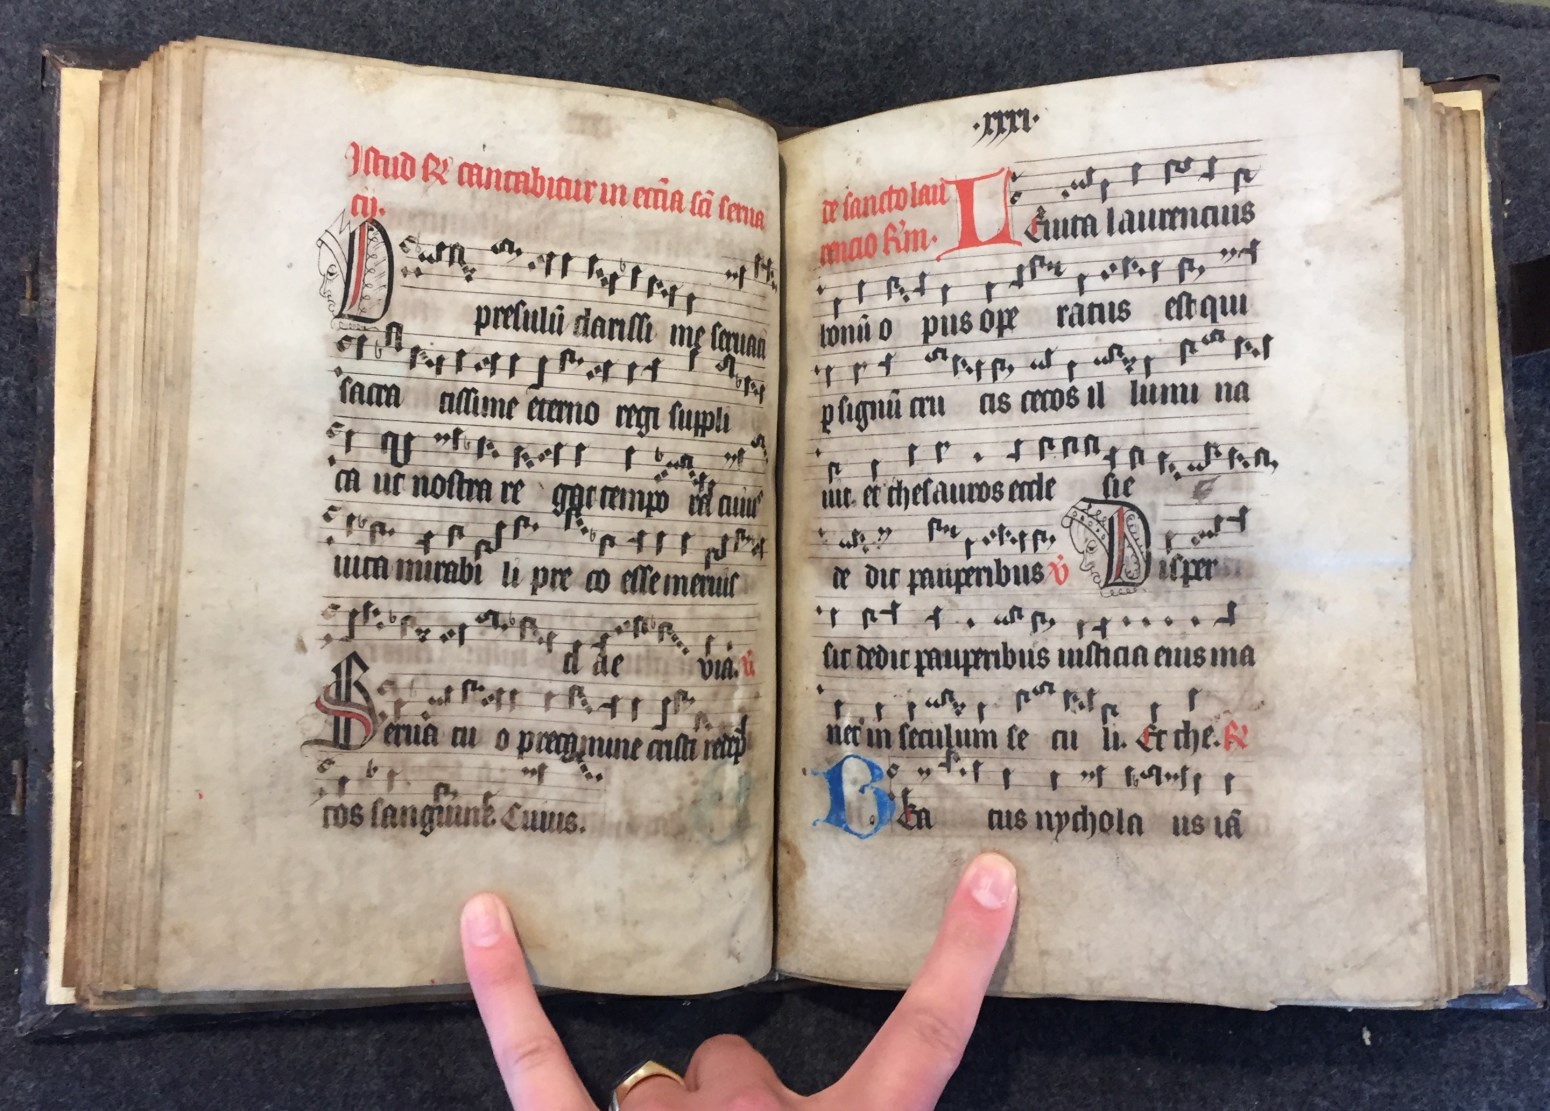 Istud R cantabitur in eccīa scī serua
cij.
O presulū clarissi me seruati
sacra tissime eterno regi suppli
ca ut nostra re gat tempo ra cuius
iuita mirabi li pre co esse meruit
el ae via. v
Serua ti o preregmine cristi
tos sanguine. Cuius.
·xxxi·
de sancto lau
rencio Rm.
Leuita laurencius
bonū o pus ope ratus est qui
p signū cru cis cecos il lumi na
uit. et thesauros eccle sie
de dit pauperibus v Disper
sit dedit pauperibus iusticia eius ma
net in seculum se cu li. Et the. R
Bea tus nychola us iā